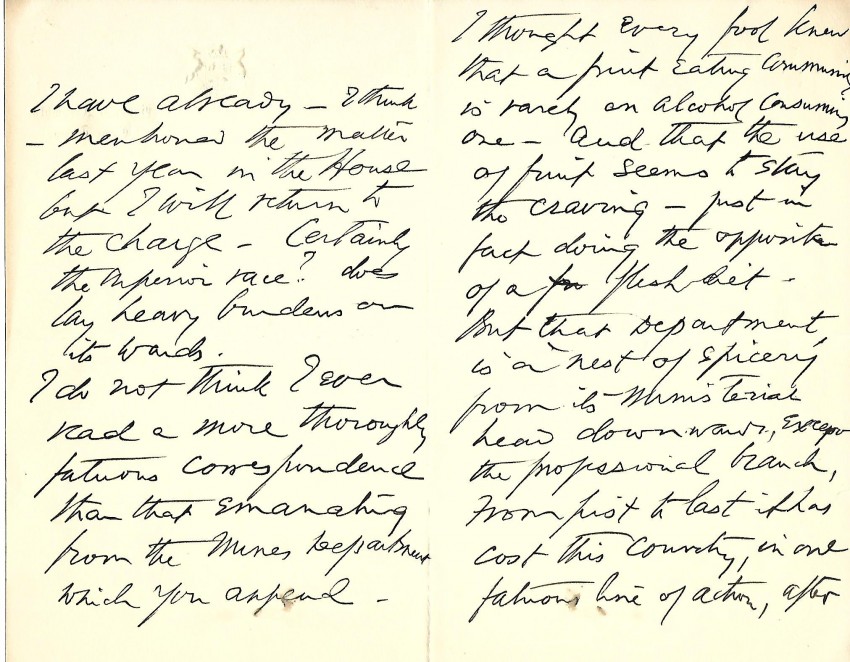 I have already – I think
– mentioned the matter
last year in the House
but I will return to
the charge – Certainly
the superior race? does
lay heavy burdens on
its wards.
I do not think I ever
read a more thoroughly
fatuous correspondence
than that emanating
from the Mines Department
which you append –
I thought every fool knew
that a fruit eating Community
is rarely an alcohol consuming
one – and that the use
of fruit seems to stay
the craving – just in
fact doing the opposite
of a flesh diet –
But that Department
is a nest of
from its Ministerial
head downwards, except
the professional branch,
From first to last it has
cost this Country, in one
fatuous line of action, after